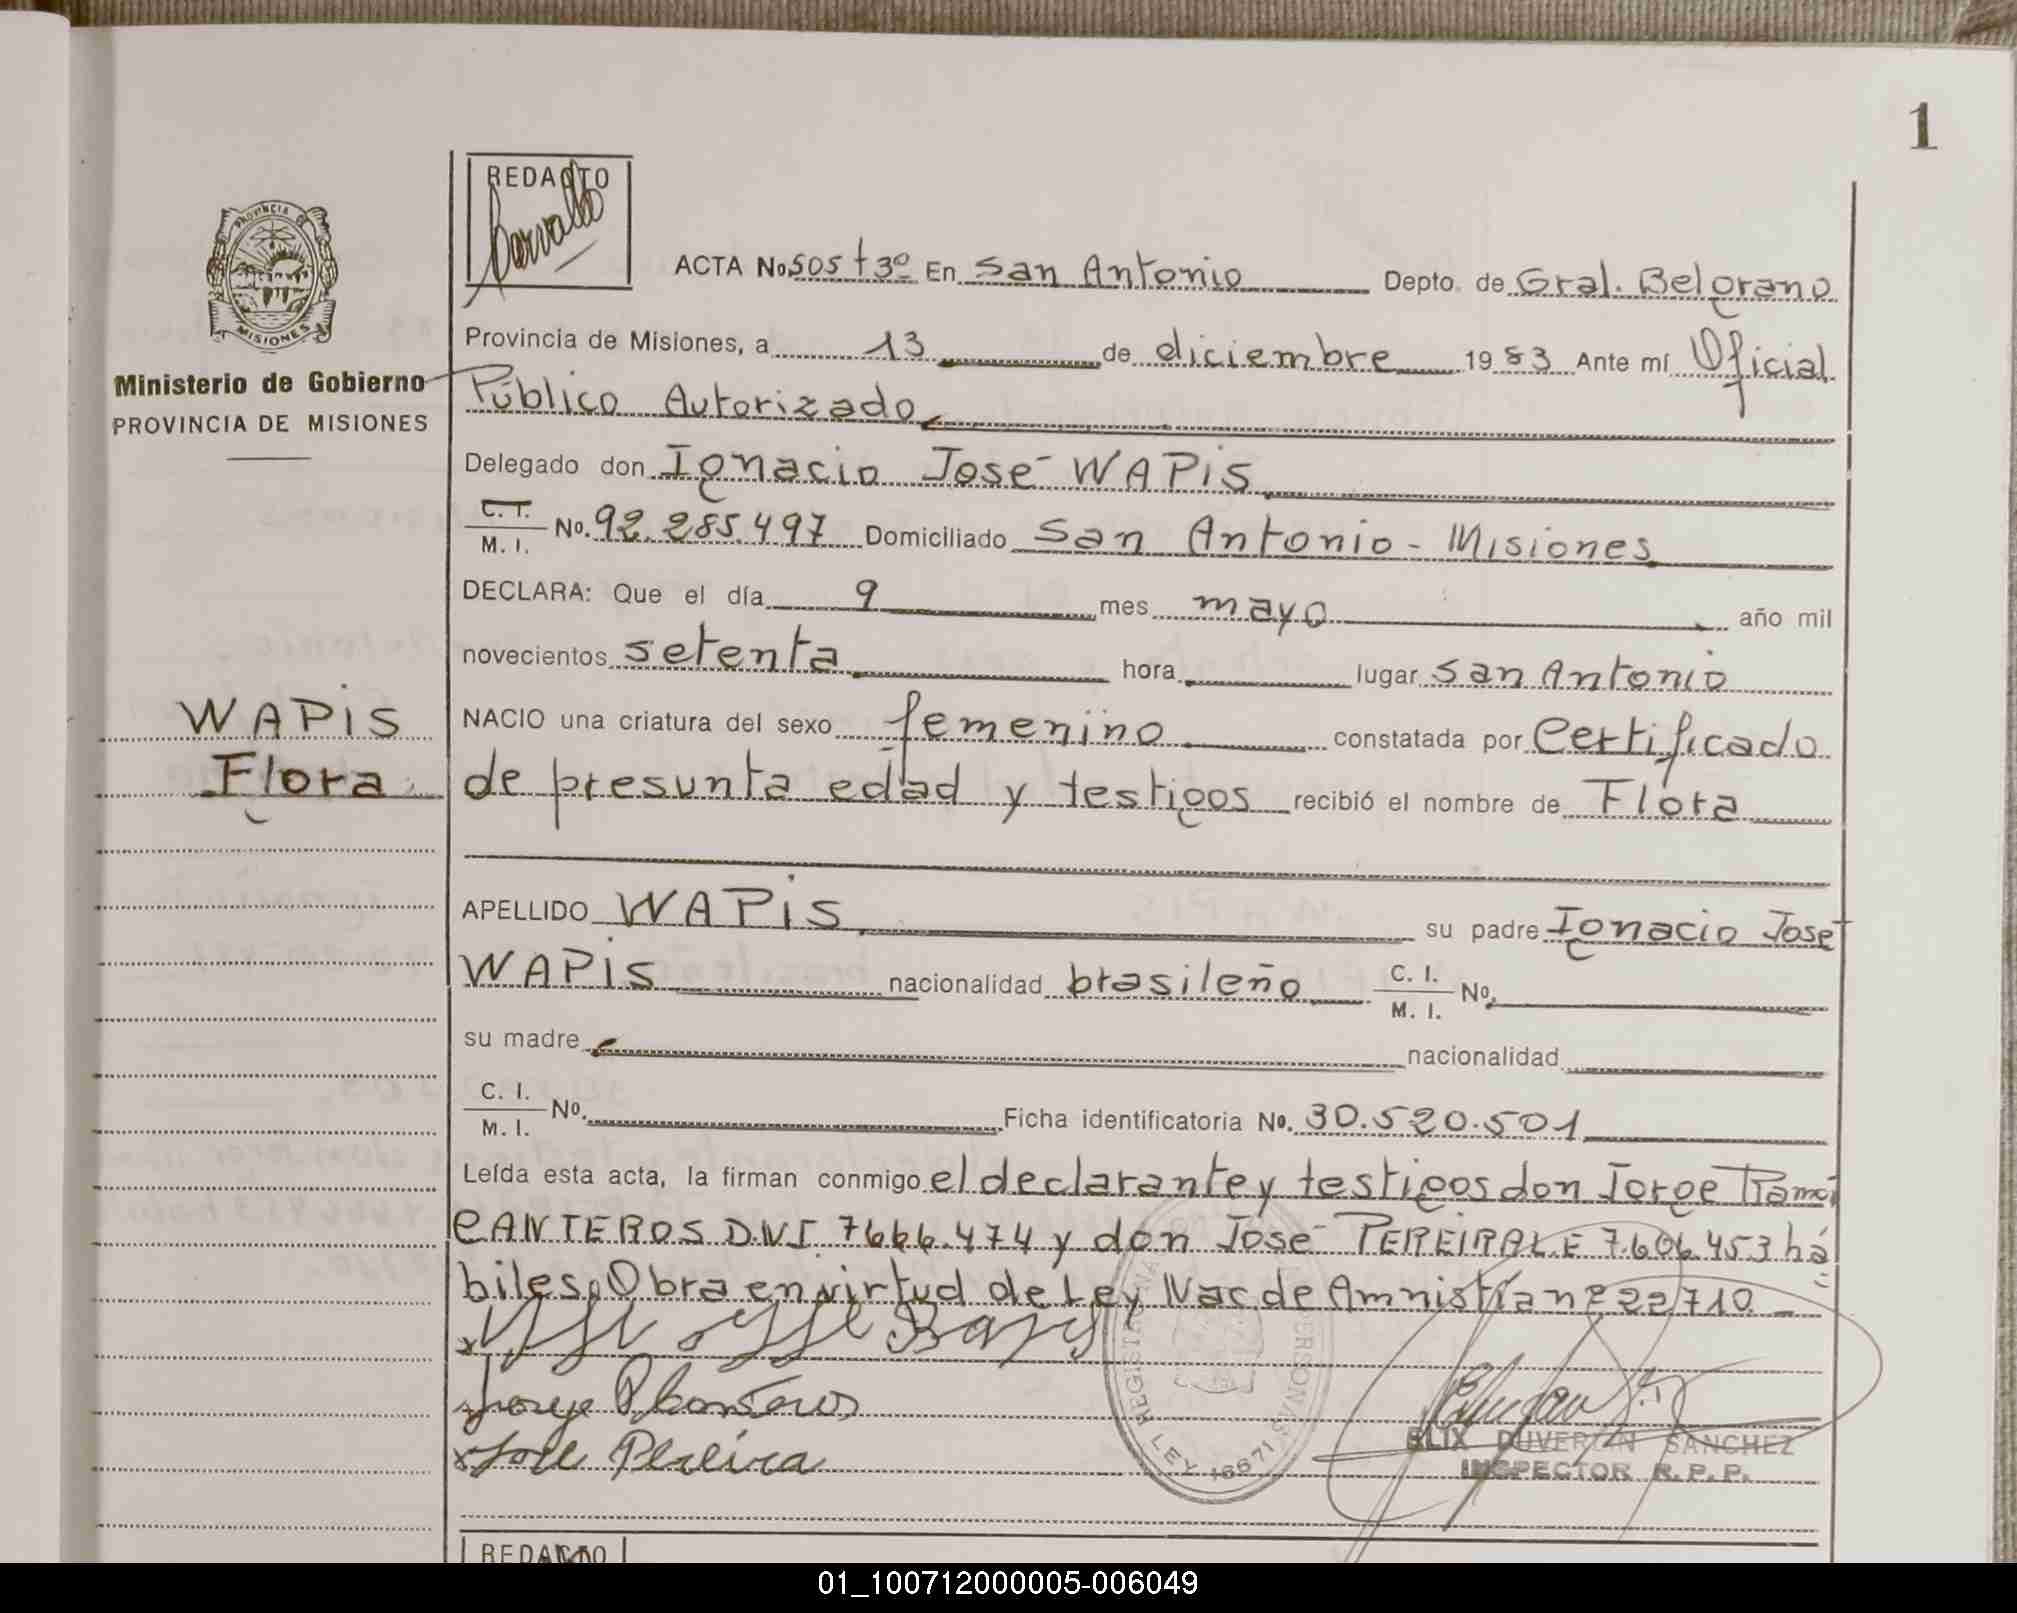 1
REDACTO
Carvallo
PROVINCIA DE
MISIONES
Ministerio de Gobierno
PROVINCIA DE MISIONES
WAPiS
Flora
ACTA No 505 t 3º En San Antonio Depto. de Gral. Belgrano
Provincia de Misiones, a 13 de diciembre 1983 Ante mí Oficial
Público Autorizado
Delegado don Ignacio José WAPiS
C. I. M. I. No. 92.285.497 Domiciliado San Antonio - Misiones
DECLARA: Que el día 9 mes mayo año mil
novecientos setenta hora lugar San Antonio
NACIO una criatura del sexo femenino constatada por Certificado
de presunta edad y testigos recibió el nombre de Flora
APELLIDO WAPiS su padre Ignacio José
WAPiS nacionalidad brasileño C. I. M. I. No.
su madre nacionalidad
C. I. M. I. No. Ficha identificatoria No. 30.520.501
Leída esta acta, la firman conmigo el declarante y testigos don Jorge Ramón
CANTEROS D.N.I. 7666.474 y don José PEREIRA L.E 7.606.453 há
biles. Obra en virtud de Ley Nac. de Amnistía nº 22710. -
Jorge R Canteros
x Jose Pereira
REGISTRO PERSONAS
LEY 16671
ELIX DUVERLIN SANCHEZ
INSPECTOR R. P. P.
REDACTO
01_100712000005-006049